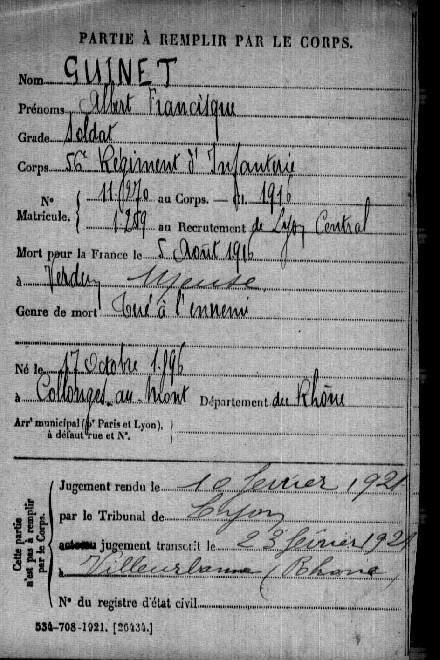 PARTIE À REMPLIR PAR LE CORPS.
Nom GUINET
Prénoms Albert Francisque
Grade Soldat
Corps 56e Régiment d'Infanterie
N° Matricule. { 11070 au Corps. — Cl. 1916
1289 au Recrutement de Lyon Central
Mort pour la France le 5 Août 1916
à Verdun Meuse
Genre de mort Tué à l'ennemi
Né le 17 Octobre 1896
à Collonges au Mont Département du Rhône
Arrt municipal (pr Paris et Lyon), à défaut rue et N°.
Cette partie n'est pas à remplir par le Corps.
Jugement rendu le 10 février 1921
par le Tribunal de Lyon
acte ou jugement transcrit le 23 février 1921
à Villeurbanne (Rhône)
N° du registre d'état civil
534-708-1921. [26434.]